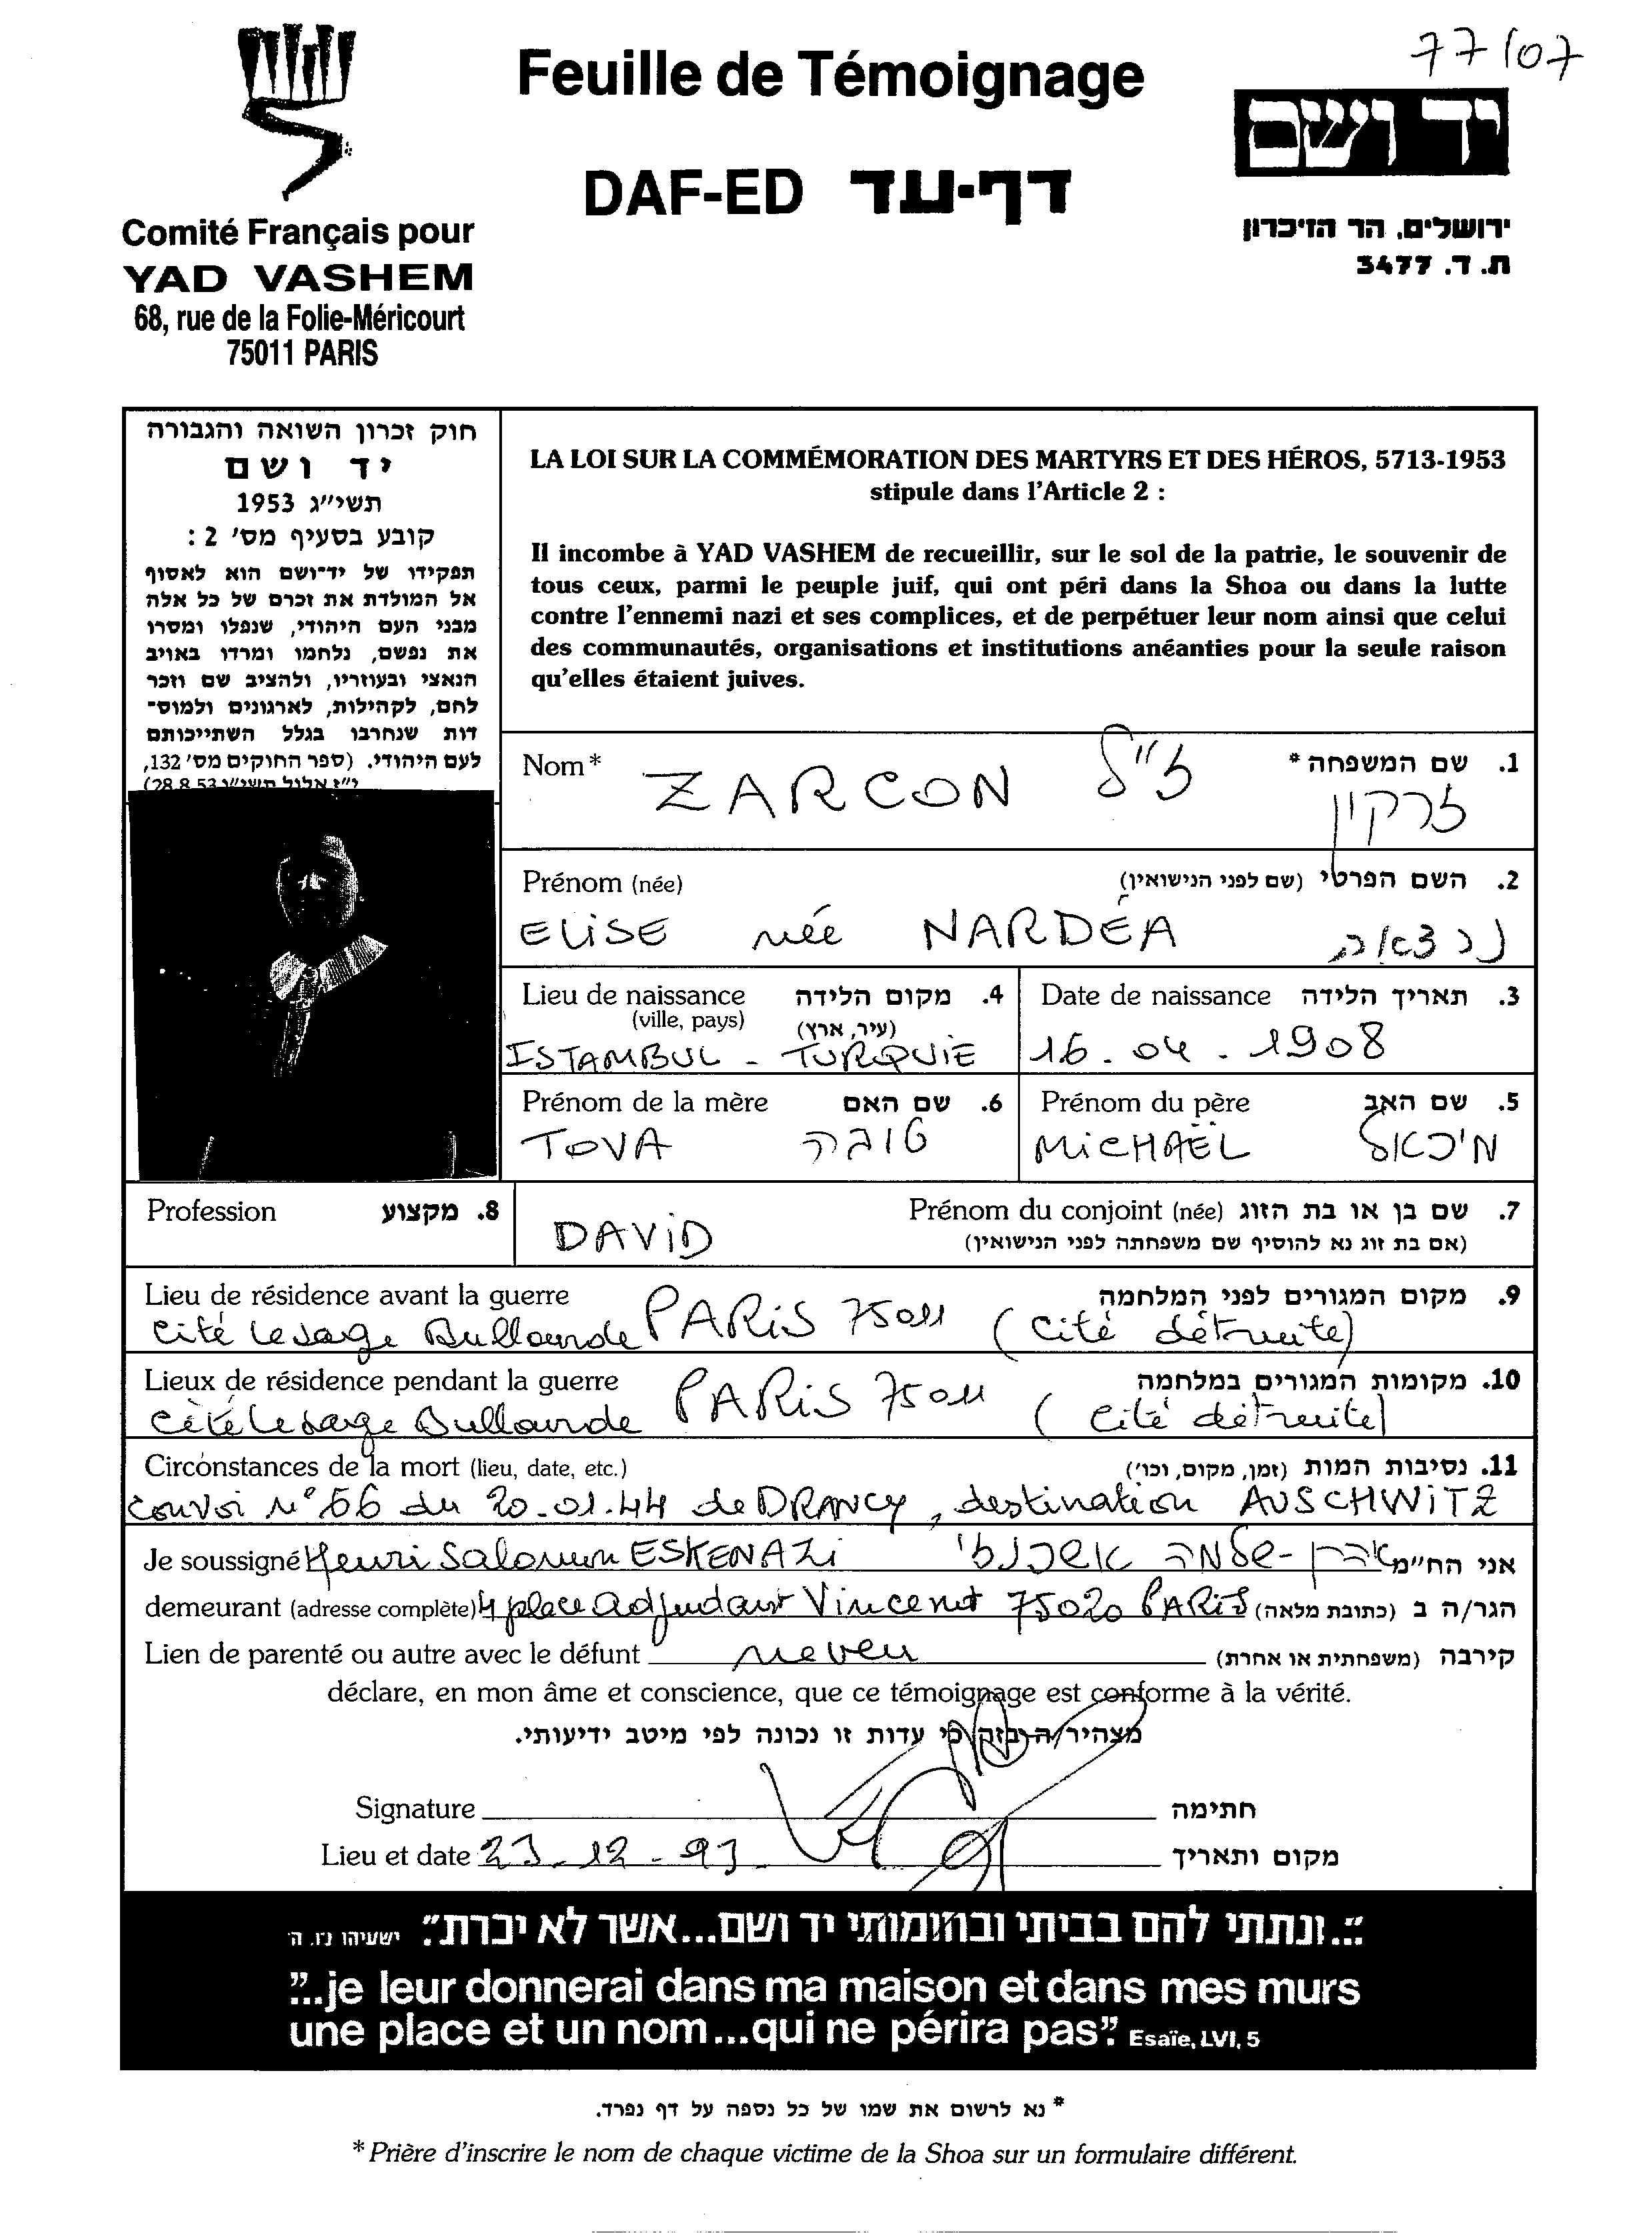 77/07
Feuille de Témoignage
DAF-ED דף-עד
Comité Français pour
YAD VASHEM
68, rue de la Folie-Méricourt
75011 PARIS
יד ושם
ירושלים, הר הזיכרון
ת. ד. 3477
חוק זכרון השואה והגבורה
יד ושם
תשי״ג 1953
קובע בסעיף מס׳ 2 :
תפקידו של יד־ושם הוא לאסוף
אל המולדת את זכרם של כל אלה
מבני העם היהודי, שנפלו ומסרו
את נפשם, נלחמו ומרדו באויב
הנאצי ובעוזריו, ולהציב שם וזכר
לחם, לקהילות, לארגונים ולמוס־
דות שנחרבו בגלל השתייכותם
לעם היהודי. (ספר החוקים מס׳ 132,
י״ז אלול תשי״ג 28.8.53)
LA LOI SUR LA COMMÉMORATION DES MARTYRS ET DES HÉROS, 5713-1953
stipule dans l'Article 2 :
Il incombe à YAD VASHEM de recueillir, sur le sol de la patrie, le souvenir de
tous ceux, parmi le peuple juif, qui ont péri dans la Shoa ou dans la lutte
contre l'ennemi nazi et ses complices, et de perpétuer leur nom ainsi que celui
des communautés, organisations et institutions anéanties pour la seule raison
qu'elles étaient juives.
Nom* 1. שם המשפחה *
ZARCON ז״ל זרקון
Prénom (née) 2. השם הפרטי (שם לפני הנישואין)
ELISE née NARDÉA
Lieu de naissance 4. מקום הלידה
(ville, pays) (עיר, ארץ)
ISTAMBUL - TURQUIE
Date de naissance 3. תאריך הלידה
16.04.1908
Prénom de la mère 6. שם האם
TOVA טובה
Prénom du père 5. שם האב
MICHAËL מיכאל
Profession 8. מקצוע
DAVID
Prénom du conjoint (née) 7. שם בן או בת הזוג
(אם בת זוג נא להוסיף שם משפחתה לפני הנישואין)
Lieu de résidence avant la guerre 9. מקום המגורים לפני המלחמה
Cité Lesage Bullourde PARIS 75011 (Cité détruite)
Lieux de résidence pendant la guerre 10. מקומות המגורים במלחמה
Cité Lesage Bullourde PARIS 75011 (Cité détruite)
Circonstances de la mort (lieu, date, etc.) 11. נסיבות המות (זמן, מקום, וכו׳)
Convoi N° 66 du 20.01.44 de DRANCY, destination AUSCHWITZ
Je soussigné Henri Salomon ESKENAZI אני הח״מ
demeurant (adresse complète) 4 place Adjudant Vincenot 75020 PARIS הגר/ה ב (כתובת מלאה)
Lien de parenté ou autre avec le défunt neveu קירבה (משפחתית או אחרת)
déclare, en mon âme et conscience, que ce témoignage est conforme à la vérité.
מצהיר/ה בזה כי עדות זו נכונה לפי מיטב ידיעותי.
Signature חתימה
Lieu et date 23-12-93 מקום ותאריך
״...ונתתי להם בביתי ובחומותי יד ושם...אשר לא יכרת״. ישעיהו נ״ו. ה׳
"...je leur donnerai dans ma maison et dans mes murs
une place et un nom...qui ne périra pas". Esaïe, LVI, 5
* נא לרשום את שמו של כל נספה על דף נפרד.
* Prière d'inscrire le nom de chaque victime de la Shoa sur un formulaire différent.